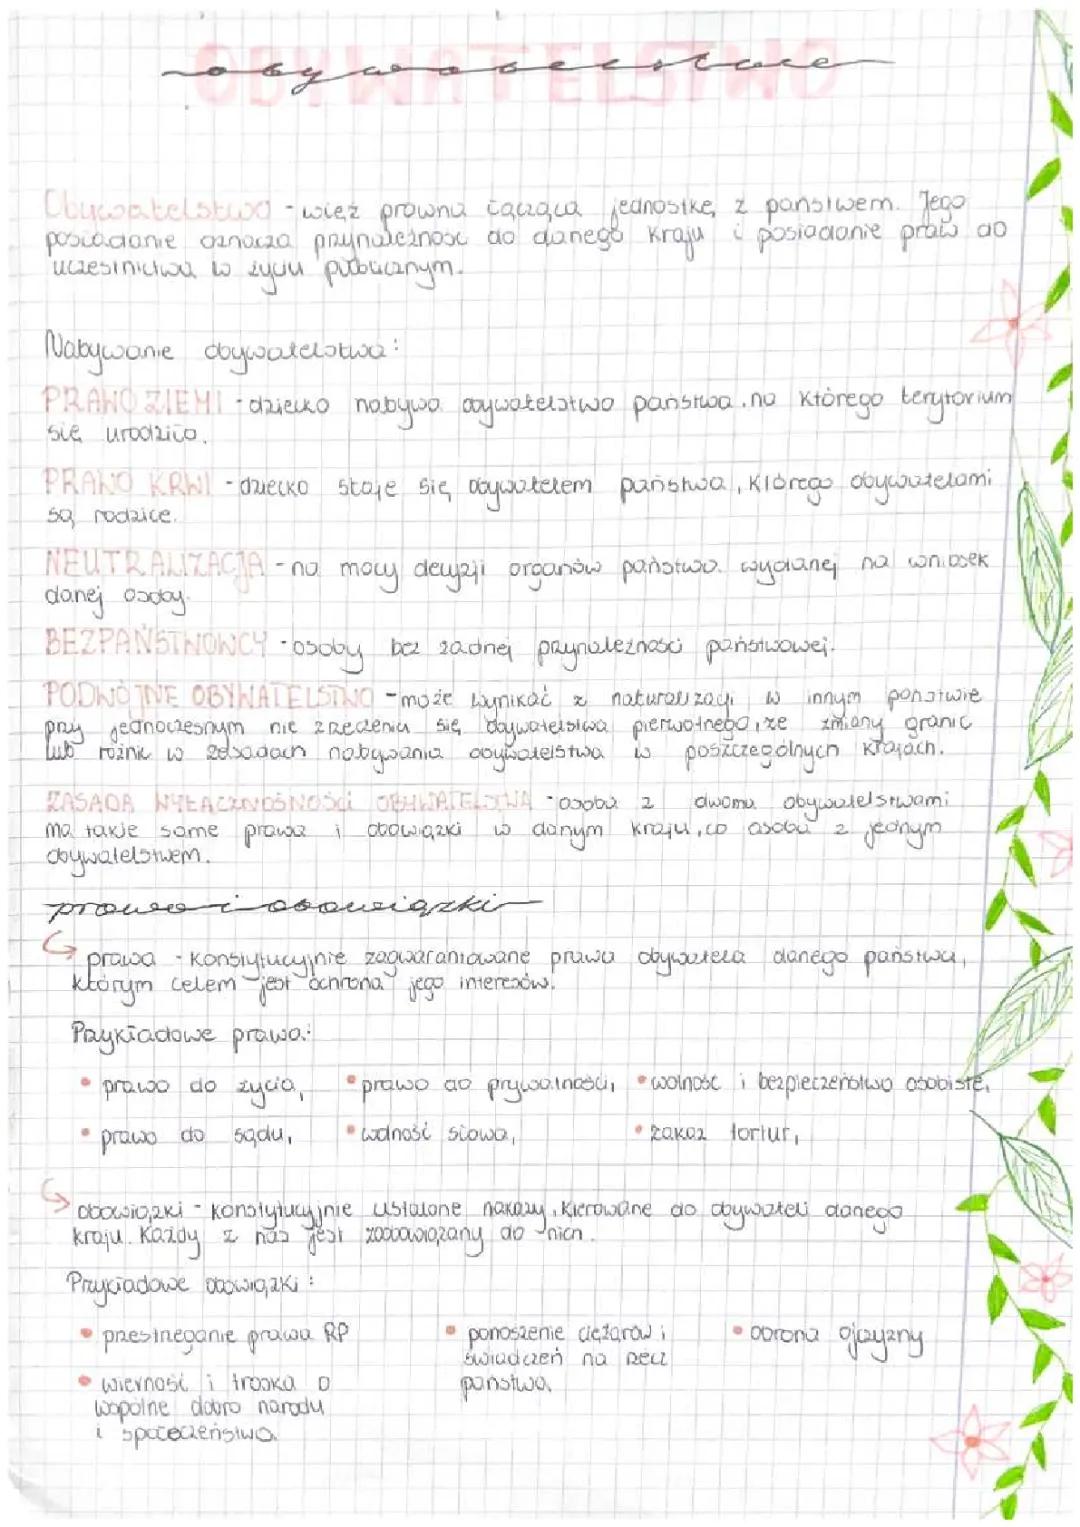 OBYWATELSTWO
obywatelstwo
Obywatelstwo - więź prawna łącząca jednostkę z państwem. Jego
posiadanie oznacza przynależność do danego kraju i posiadanie praw do
uczestnictwa w życiu publicznym.
Nabywanie obywatelstwa:
PRAWO ZIEMI - dziecko nabywa obywatelstwo państwa na którego terytorium
się urodziło.
PRAWO KRWI - dziecko staje się obywatelem państwa, którego obywatelami
są rodzice.
NEUTRALIZACJA - na mocy decyzji organów państwa wydanej na wniosek
danej osoby.
BEZPAŃSTWOWCY - osoby bez żadnej przynależności państwowej.
PODWÓJNE OBYWATELSTWO - może wynikać z naturalizacji w innym państwie
przy jednoczesnym nie zrzeczeniu się obywatelstwa pierwotnego, ze zmiany granic
lub różnic w zasadach nabywania obywatelstwa w poszczególnych krajach.
ZASADA WYŁĄCZNOŚNOŚCI OBYWATELSTWA - osoba z dwoma obywatelstwami
ma takie same prawa i obowiązki w danym kraju, co osoba z jednym
obywatelstwem.
prawa i obowiązki
prawa - konstytucyjnie zagwarantowane prawa obywatela danego państwa,
którym celem jest ochrona jego interesów.
Przykładowe prawa:
• prawo do życia, • prawo do prywatności, • wolność i bezpieczeństwo osobiste,
• prawo do sądu, • wolność słowa, • zakaz tortur,
obowiązki - konstytucyjnie ustalone nakazy kierowane do obywateli danego
kraju. Każdy z nas jest zobowiązany do nich.
Przykładowe obowiązki:
• przestrzeganie prawa RP
• wierność i troska o
wspólne dobro narodu
i społeczeństwa.
• ponoszenie ciężarów i
świadczeń na rzecz
państwa,
• obrona ojczyzny